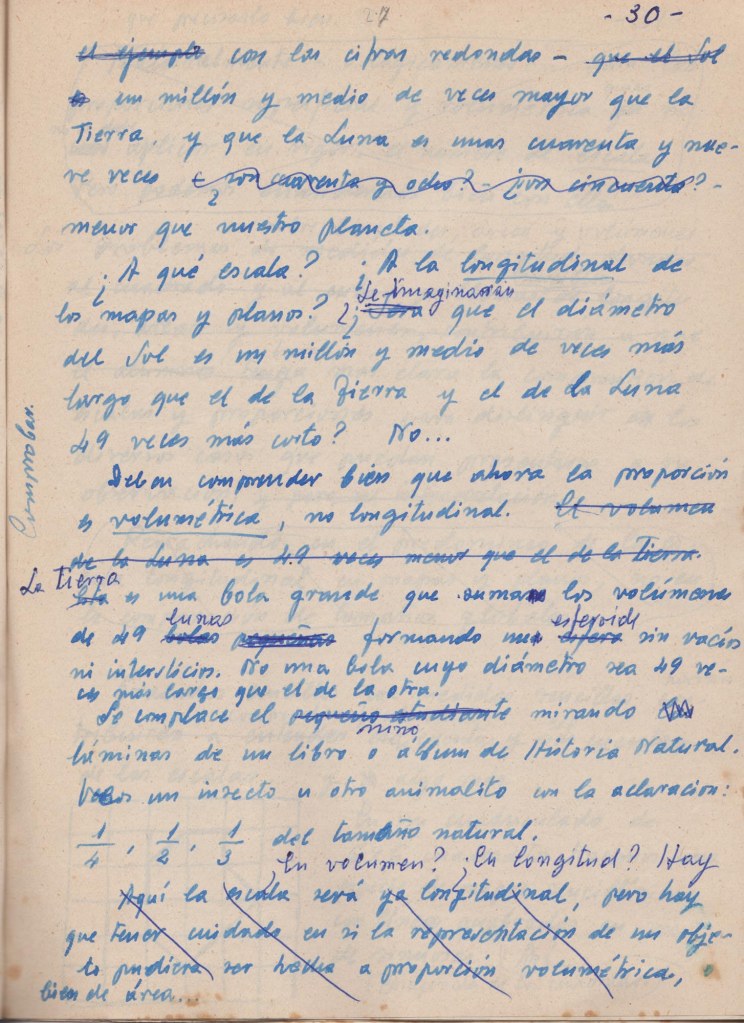 27
- 30 -
el ejemplo con las cifras redondas - que el Sol
es un millón y medio de veces mayor que la
Tierra y que la Luna es unas cuarenta y nue-
ve veces ¿son cuarenta y ocho? - ¿son cincuenta? -
menor que nuestro planeta.
¿A qué escala? ¿A la longitudinal de
Se imaginarán
los mapas y planos? ¿ que el diámetro
del Sol es un millón y medio de veces más
largo que el de la Tierra y el de la Luna
49 veces más corto? No...
Comprobar.
Deben comprender bien que ahora la proporción
es volumétrica, no longitudinal. El volumen
de la Luna es 49 veces menor que el de la Tierra.
La Tierra
Esta es una bola grande que suma los volúmenes
lunas esferoide
de 49 bolas pequeñas formando una esfera sin vacíos
ni intersticios. No una bola cuyo diámetro sea 49 ve-
ces más largo que el de la otra.
Se complace el pequeño estudiante mirando
niño
láminas de un libro o álbum de Historia Natural.
Vemos un insecto u otro animalito con la aclaración:
1/4, 1/2, 1/3 del tamaño natural.
¿En volumen? ¿En longitud? Hay
Aquí la escala será ya longitudinal, pero hay
que tener cuidado en si la representación de un obje-
to pudiera ser hecha a proporción volumétrica,
bien de área...